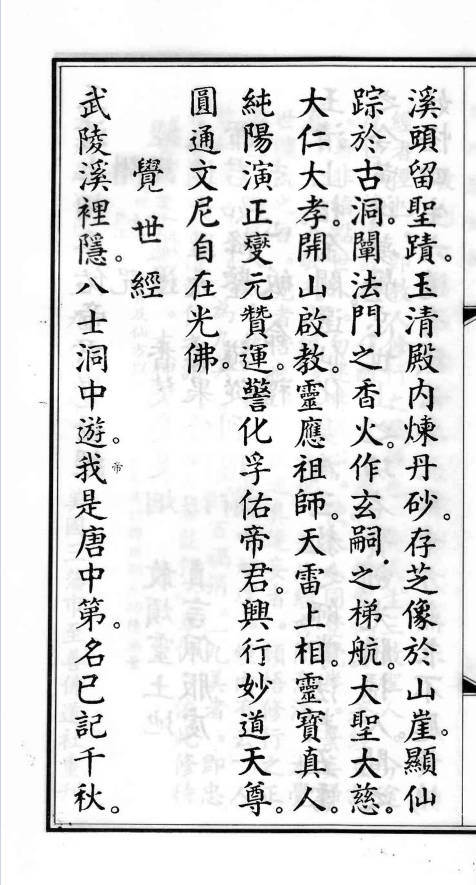 溪頭留聖蹟。玉清殿內煉丹砂。存芝像於山崖。顯仙
踪於古洞。闡法門之香火。作玄嗣之梯航。大聖大慈。
大仁大孝。開山啟教。靈應祖師。天雷上相。靈寶真人。
純陽演正。孌元贊運。警化孚佑帝君。興行妙道天尊。
圓通文尼自在光佛。
覺世經
武陵溪裡隱。八士洞中遊。我帝是唐中第。名已記千秋。